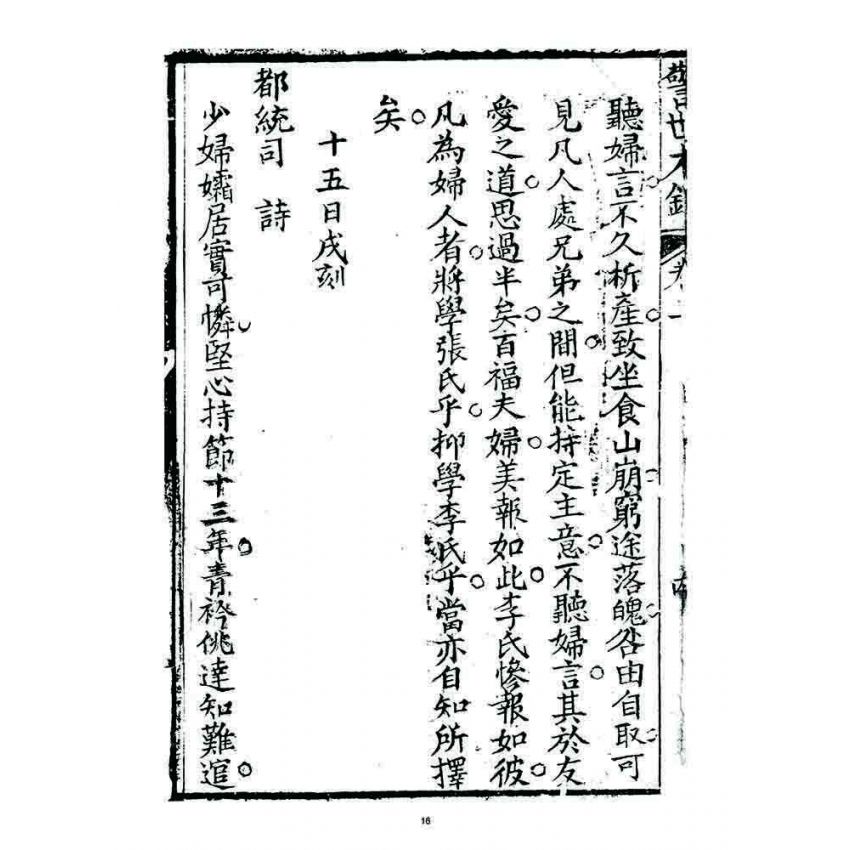 警世木鐸 卷一
聽婦言不久析產致坐食山崩窮途落魄咎由自取可
見凡人處兄弟之間但能持定主意不聽婦言其於友
愛之道思過半矣百福夫婦美報如此李氏慘報如彼
凡為婦人者將學張氏乎抑學李氏乎當亦自知所擇
矣
十五日戌刻
都統司 詩
少婦孀居實可憐堅心持節十三年青衿佻達知難逭
16